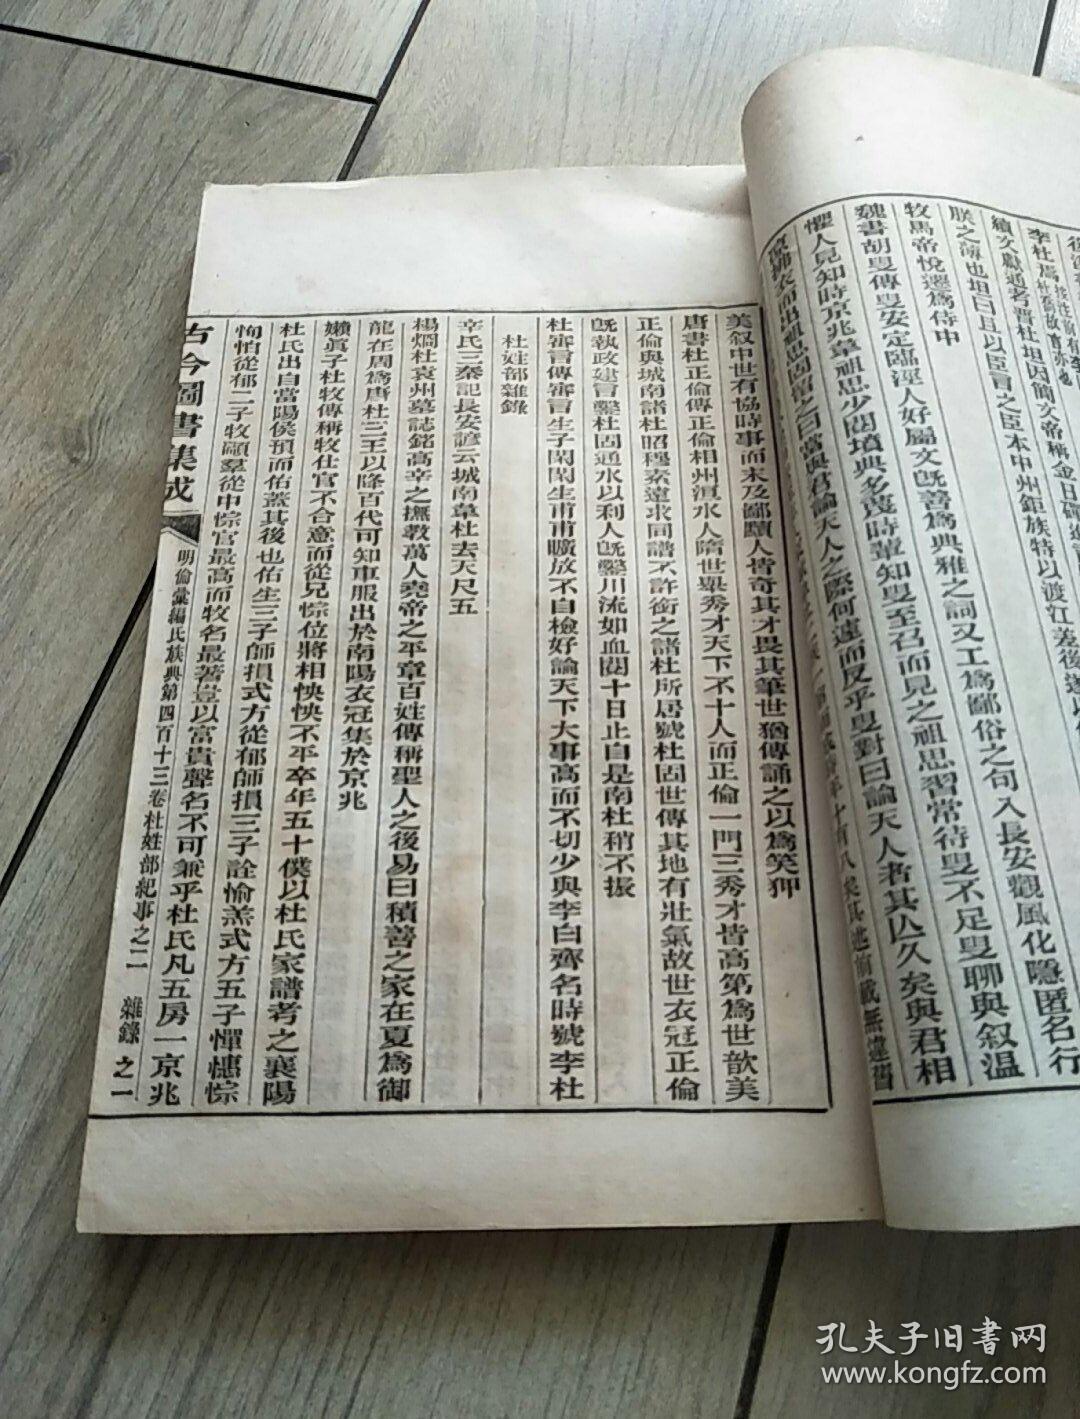 李杜厲
續文獻通考晉杜坦因簡文帝稱金日磾
朕之薄也坦曰且以臣言之臣本中州鉅族特以渡江差後
牧馬帝悅遷為侍中
魏書胡叟傳叟安定臨涇人好屬文既善為典雅之詞又工為鄙俗之句入長安觀風化隱匿名行
懼人見知時京兆韋祖思少閱墳典多蔑時輩知叟至召而見之祖思習常待叟不足叟聊與叙溫
涼拂衣而出祖思固留之曰當與君論天人之際何遽而反乎叟對曰論天人者其亡久矣與君相
美叙中世有協時事而末及鄙黷人皆奇其才畏其筆世猶傳誦之以為笑狎
唐書杜正倫傳正倫相州洹水人隋世舉秀才天下不十人而正倫一門三秀才皆高第為世歆美
正倫與城南諸杜昭穆素遠求同譜不許銜之諸杜所居號杜固世傳其地有壯氣故世衣冠正倫
既執政建言鑿杜固通水以利人既鑿川流如血閱十日止自是南杜稍不振
杜審言傳審言生子閑閑生甫甫曠放不自檢好論天下大事高而不切少與李白齊名時號李杜
杜姓部雜錄
辛氏三秦記長安諺云城南韋杜去天尺五
楊炯杜袁州墓誌銘高辛之撫教萬人堯帝之平章百姓傳稱聖人之後易曰積善之家在夏為御
龍在周為唐杜三王以降百代可知車服出於南陽衣冠集於京兆
嬾真子杜牧傳稱牧仕官不合意而從兄悰位將相怏怏不平卒年五十僕以杜氏家譜考之襄陽
杜氏出自當陽侯預而佑蓋其後也佑生三子師損式方從郁師損三子詮愉羔式方五子惲憓悰
恂怕從郁二子牧顗羣從中悰官最高而牧名最著豈以富貴聲名不可兼乎杜氏凡五房一京兆
古今圖書集成 明倫彙編氏族典第四百十三卷杜姓部紀事之二 雜錄 之一
孔夫子旧書网
www.kongfz.com